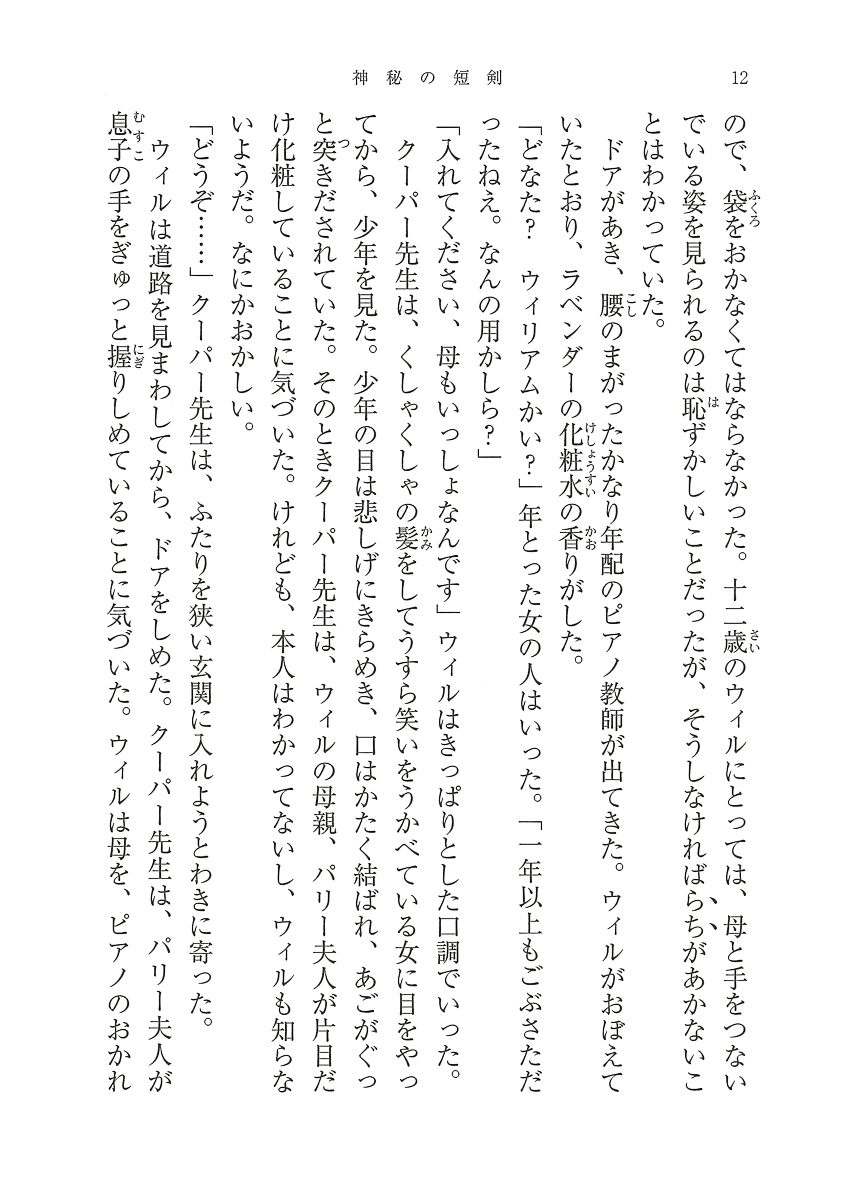 神秘の短剣
12
ので、袋をおかなくてはならなかった。十二歳のウィルにとっては、母と手をつない
でいる姿を見られるのは恥ずかしいことだったが、そうしなければらちがあかないこ
とはわかっていた。
ドアがあき、腰のまがったかなり年配のピアノ教師が出てきた。ウィルがおぼえて
いたとおり、ラベンダーの化粧水の香りがした。
「どなた？　ウィリアムかい？」年とった女の人はいった。「一年以上もごぶさただ
ったねえ。なんの用かしら？」
「入れてください、母もいっしょなんです」ウィルはきっぱりとした口調でいった。
クーパー先生は、くしゃくしゃの髪をしてうすら笑いをうかべている女に目をやっ
てから、少年を見た。少年の目は悲しげにきらめき、口はかたく結ばれ、あごがぐっ
と突きだされていた。そのときクーパー先生は、ウィルの母親、パリー夫人が片目だ
け化粧していることに気づいた。けれども、本人はわかってないし、ウィルも知らな
いようだ。なにかおかしい。
「どうぞ……」クーパー先生は、ふたりを狭い玄関に入れようとわきに寄った。
ウィルは道路を見まわしてから、ドアをしめた。クーパー先生は、パリー夫人が
息子の手をぎゅっと握りしめていることに気づいた。ウィルは母を、ピアノのおかれ